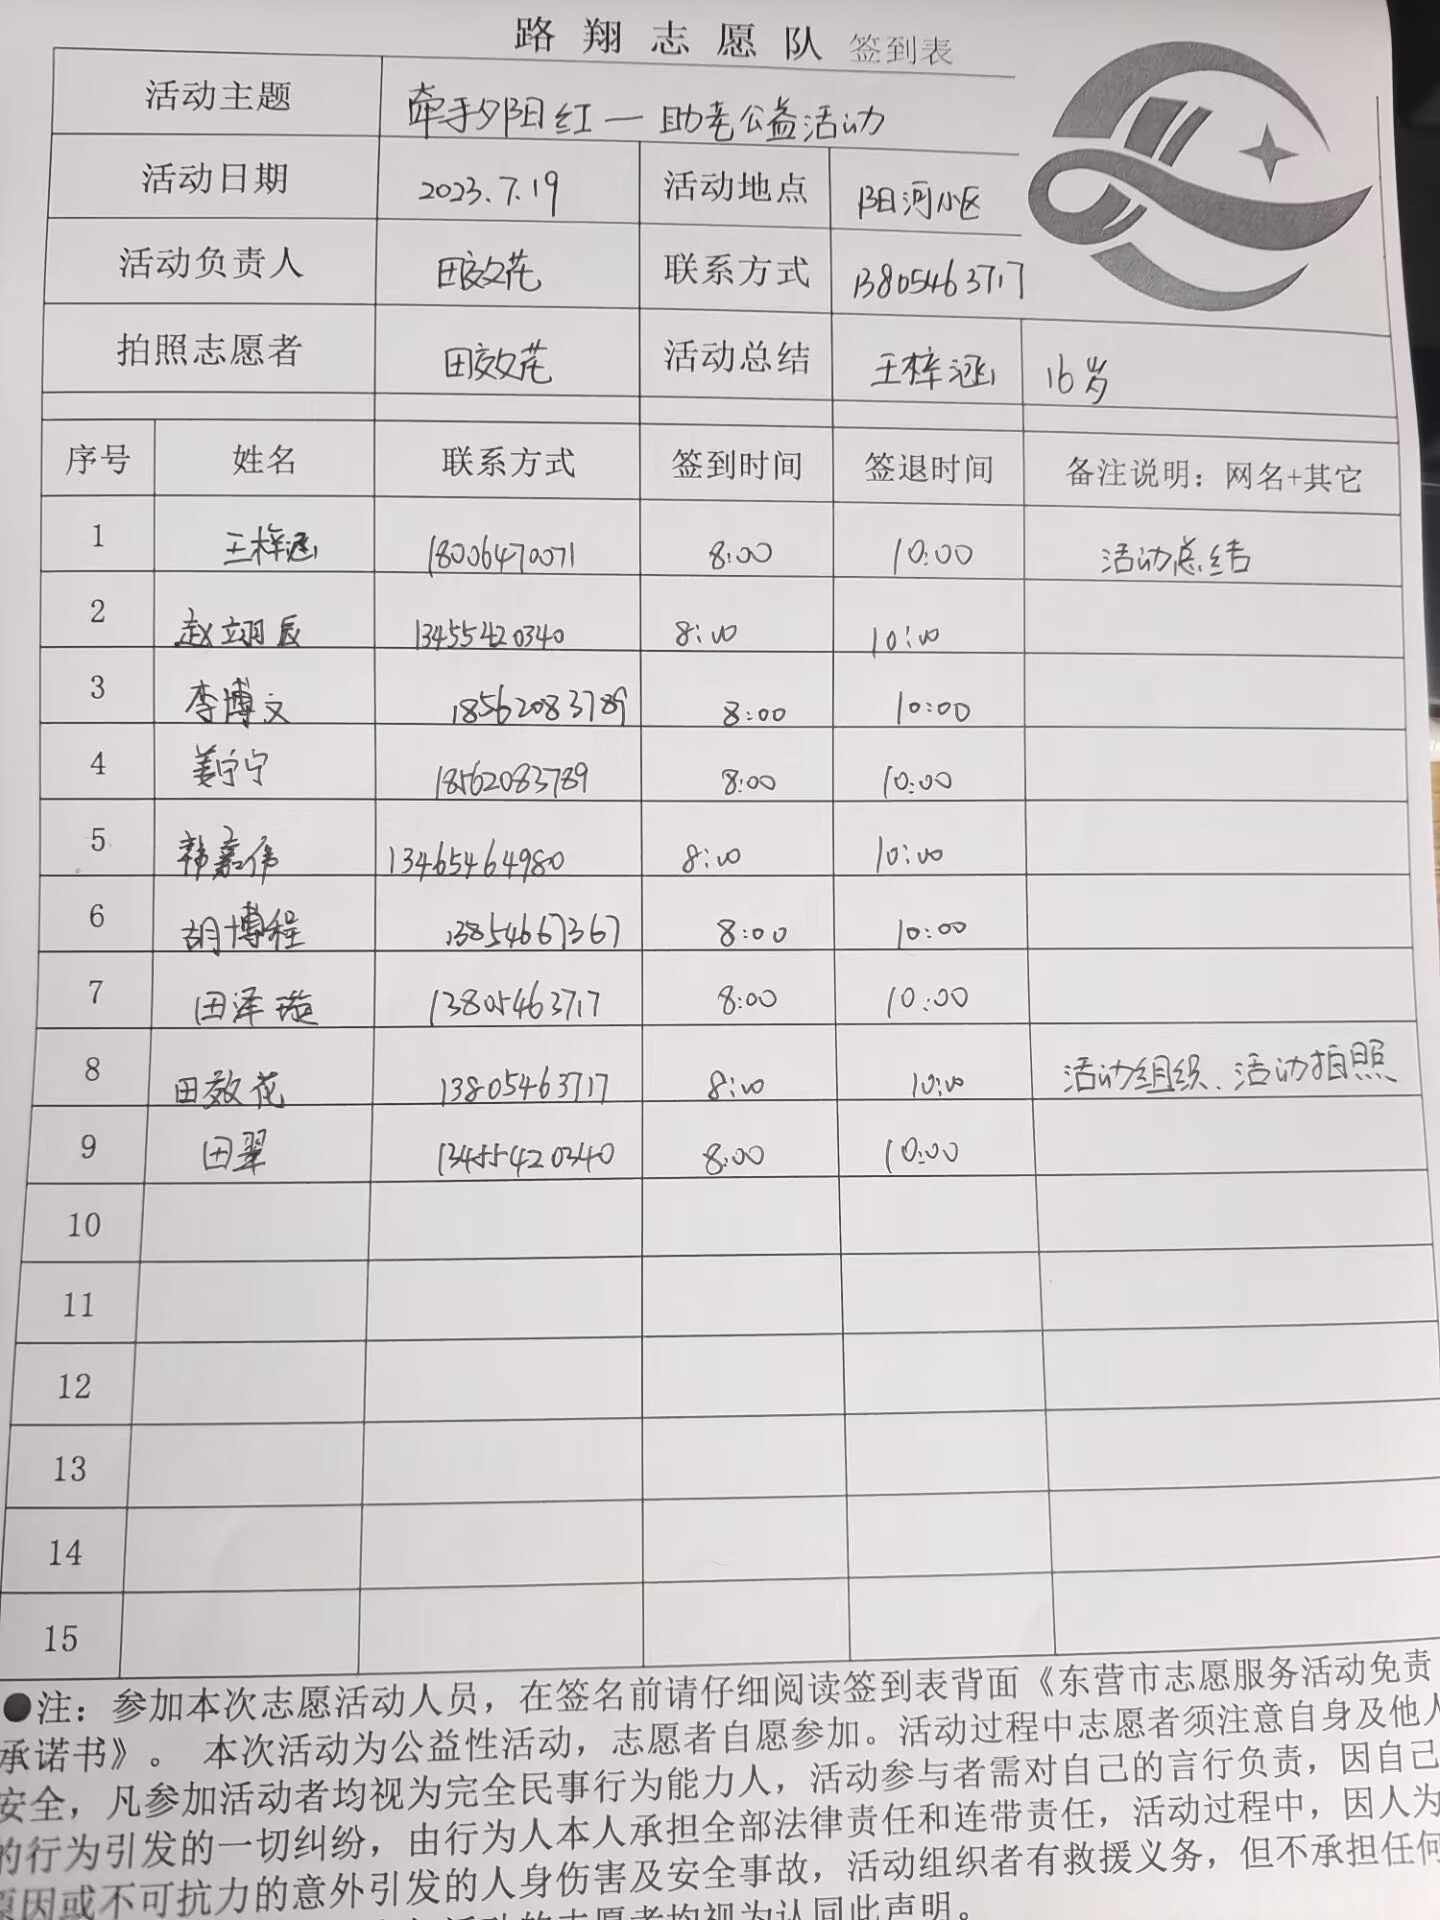 路翔志愿队 签到表
活动主题 牵手夕阳红一助老公益活动
活动日期 2023.7.19 活动地点 阳河小区
活动负责人 田效花 联系方式 13805463717
拍照志愿者 田效花 活动总结 王梓涵 16岁
序号 姓名 联系方式 签到时间 签退时间 备注说明：网名+其它
1 王梓涵 18006470071 8:00 10:00 活动总结
2 赵翊辰 13455420340 8:00 10:00
3 李博文 18562083789 8:00 10:00
4 姜宁宁 18562083789 8:00 10:00
5 韩嘉伟 13465464980 8:00 10:00
6 胡博程 13854667367 8:00 10:00
7 田泽璇 13805463717 8:00 10:00
8 田效花 13805463717 8:00 10:00 活动组织、活动拍照
9 田翠 13455420340 8:00 10:00
10
11
12
13
14
15
●注：参加本次志愿活动人员，在签名前请仔细阅读签到表背面《东营市志愿服务活动免责
承诺书》。 本次活动为公益性活动，志愿者自愿参加。活动过程中志愿者须注意自身及他人
安全，凡参加活动者均视为完全民事行为能力人，活动参与者需对自己的言行负责，因自己
的行为引发的一切纠纷，由行为人本人承担全部法律责任和连带责任，活动过程中，因人为
原因或不可抗力的意外引发的人身伤害及安全事故，活动组织者有救援义务，但不承担任何
活动的志愿者均视为认同此声明。